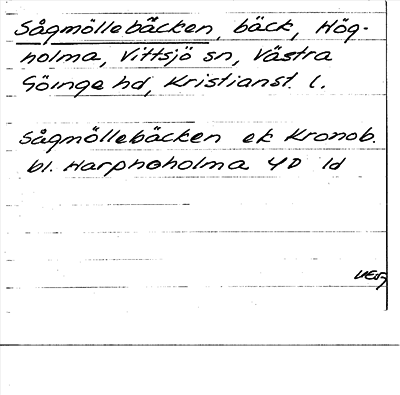 Sågmöllebäcken, bäck, Hög-
holma, Vittsjö sn, Västra
Göinge hd, Kristianst. l.
Sågmöllebäcken ek Kronob.
bl. Harphoholma 4D 1d